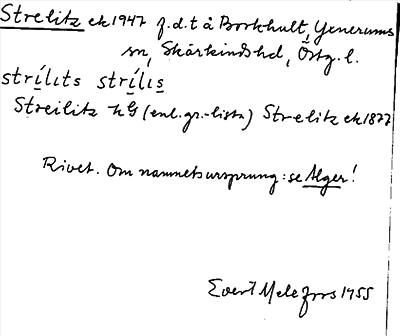 Strelitz ek 1947 f.d.t å Borkhult, Yxnerums
sn, Skärkinds hd, Östg. l.
strílıts strílıs
Streilitz hG (enl. gr.-lista) Strelitz ek 1877
Rivet. Om namnets ursprung: se Alger!
Evert Melefors 1955